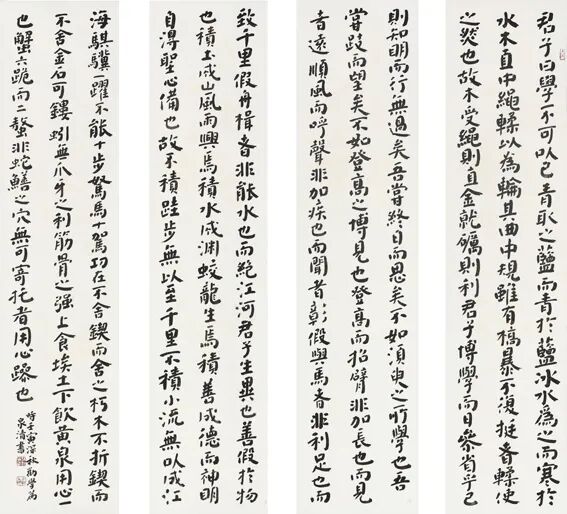 君子曰學不可以已青取之藍而青於藍冰水為之而寒於
水木直中繩輮以為輪其曲中規雖有槁暴不復挺者輮使
之然也故木受繩則直金就礪則利君子博學而日參省乎己
則知明而行無過矣吾嘗終日而思矣不如須臾之所學也吾
嘗跂而望矣不如登高之博見也登高而招臂非加長也而見
者遠順風而呼聲非加疾也而聞者彰假輿馬者非利足也而
致千里假舟楫者非能水也而絕江河君子生異也善假於物
也積土成山風雨興焉積水成淵蛟龍生焉積善成德而神明
自得聖心備也故不積跬步無以至千里不積小流無以成江
海騏驥一躍不能十步駑馬十駕功在不舍鍥而舍之朽木不折鍥而
不舍金石可鏤蚓無爪牙之利筋骨之强上食埃土下飲黃泉用心一
也蟹六跪而二螯非蛇鱔之穴無可寄托者用心躁也
時壬寅深秋勸學篇
泉清書